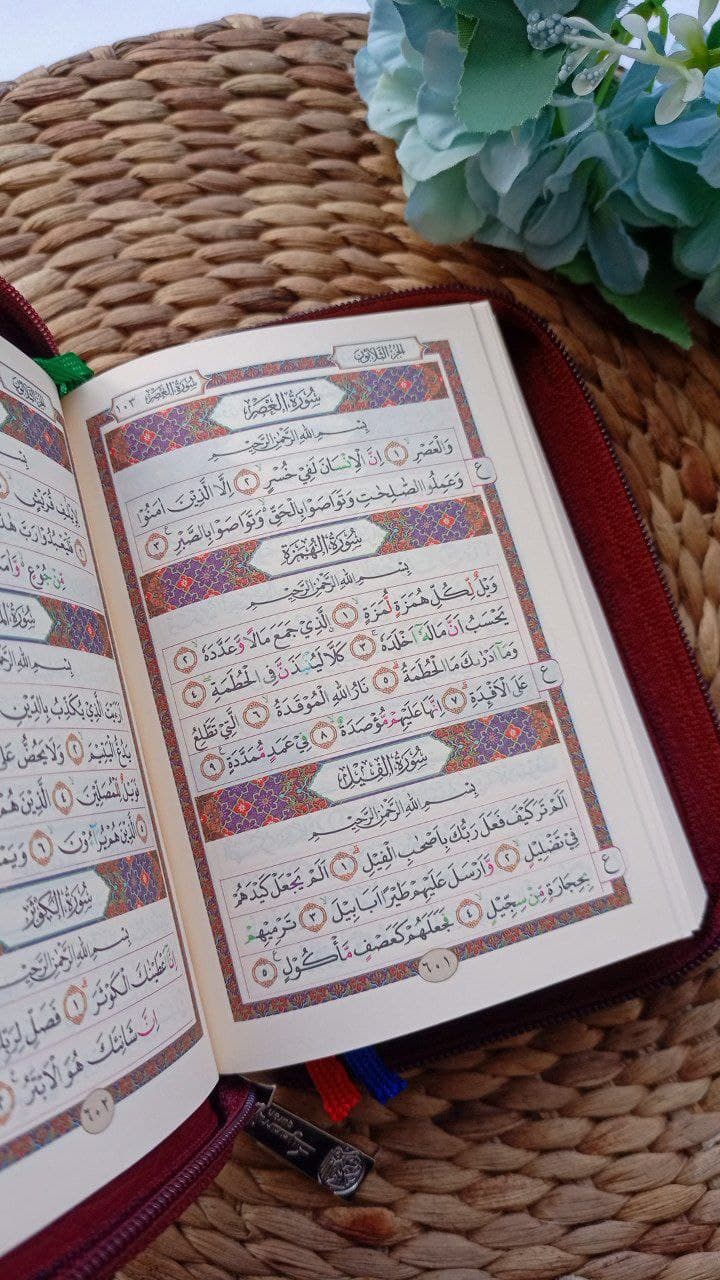 الجزء الثلاثون سورة العصر ١٠٣
سُوْرَةُ الْعَصْرِ
بِسْمِ اللّٰهِ الرَّحْمٰنِ الرَّحِيْمِ
وَالْعَصْرِۙ ١ اِنَّ الْاِنْسَانَ لَفِيْ خُسْرٍۙ ٢ اِلَّا الَّذِيْنَ اٰمَنُوْا
وَعَمِلُوا الصّٰلِحٰتِ وَتَوَاصَوْا بِالْحَقِّ ەۙ وَتَوَاصَوْا بِالصَّبْرِ ࣖ ٣ ع
سُوْرَةُ الْهُمَزَةِ
بِسْمِ اللّٰهِ الرَّحْمٰنِ الرَّحِيْمِ
وَيْلٌ لِّكُلِّ هُمَزَةٍ لُّمَزَةٍۙ ١ ۨالَّذِيْ جَمَعَ مَالًا وَّعَدَّدَهٗۙ ٢
يَحْسَبُ اَنَّ مَالَهٗٓ اَخْلَدَهٗۚ ٣ كَلَّا لَيُنْۢبَذَنَّ فِى الْحُطَمَةِۖ ٤
وَمَآ اَدْرٰىكَ مَا الْحُطَمَةُۗ ٥ نَارُ اللّٰهِ الْمُوْقَدَةُۙ ٦ الَّتِيْ تَطَّلِعُ
عَلَى الْاَفْـِٕدَةِۗ ٧ اِنَّهَا عَلَيْهِمْ مُّؤْصَدَةٌۙ ٨ فِيْ عَمَدٍ مُّمَدَّدَةٍ ࣖ ٩ ع
سُوْرَةُ الْفِيْلِ
بِسْمِ اللّٰهِ الرَّحْمٰنِ الرَّحِيْمِ
اَلَمْ تَرَ كَيْفَ فَعَلَ رَبُّكَ بِاَصْحٰبِ الْفِيْلِۗ ١ اَلَمْ يَجْعَلْ كَيْدَهُمْ
فِيْ تَضْلِيْلٍۙ ٢ وَّاَرْسَلَ عَلَيْهِمْ طَيْرًا اَبَابِيْلَۙ ٣ تَرْمِيْهِمْ
بِحِجَارَةٍ مِّنْ سِجِّيْلٍۙ ٤ فَجَعَلَهُمْ كَعَصْفٍ مَّأْكُوْلٍ ࣖ ٥ ع
٦٠١
الجزء الثلاثون
بِسْمِ
لِاِيْلٰفِ قُرَيْشٍۙ
فَلْيَعْبُدُوْا رَبَّ
مِّنْ جُوْعٍ
سُوْرَةُ
بِسْمِ اللّٰهِ
اَرَءَيْتَ الَّذِيْ يُكَذِّبُ بِالدِّيْنِۗ
يَدُعُّ الْيَتِيْمَۙ ٢ وَلَا يَحُضُّ
فَوَيْلٌ لِّلْمُصَلِّيْنَۙ ٤ الَّذِيْنَ هُمْ
٥ الَّذِيْنَ هُمْ يُرَاۤءُوْنَۙ ٦
سُوْرَةُ الْكَوْثَرِ
بِسْمِ اللّٰهِ الرَّحْمٰنِ الرَّحِيْمِ
اِنَّآ اَعْطَيْنٰكَ الْكَوْثَرَۗ ١ فَصَلِّ
اِنَّ شَانِئَكَ هُوَ الْاَبْتَرُ ࣖ ٣
٦٠٢